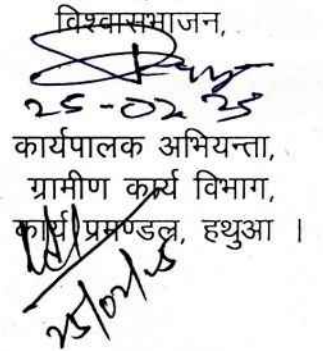 विश्वासभाजन,
25-02-25
कार्यपालक अभियन्ता,
ग्रामीण कार्य विभाग,
कार्य प्रमण्डल, हथुआ ।
25/02/25